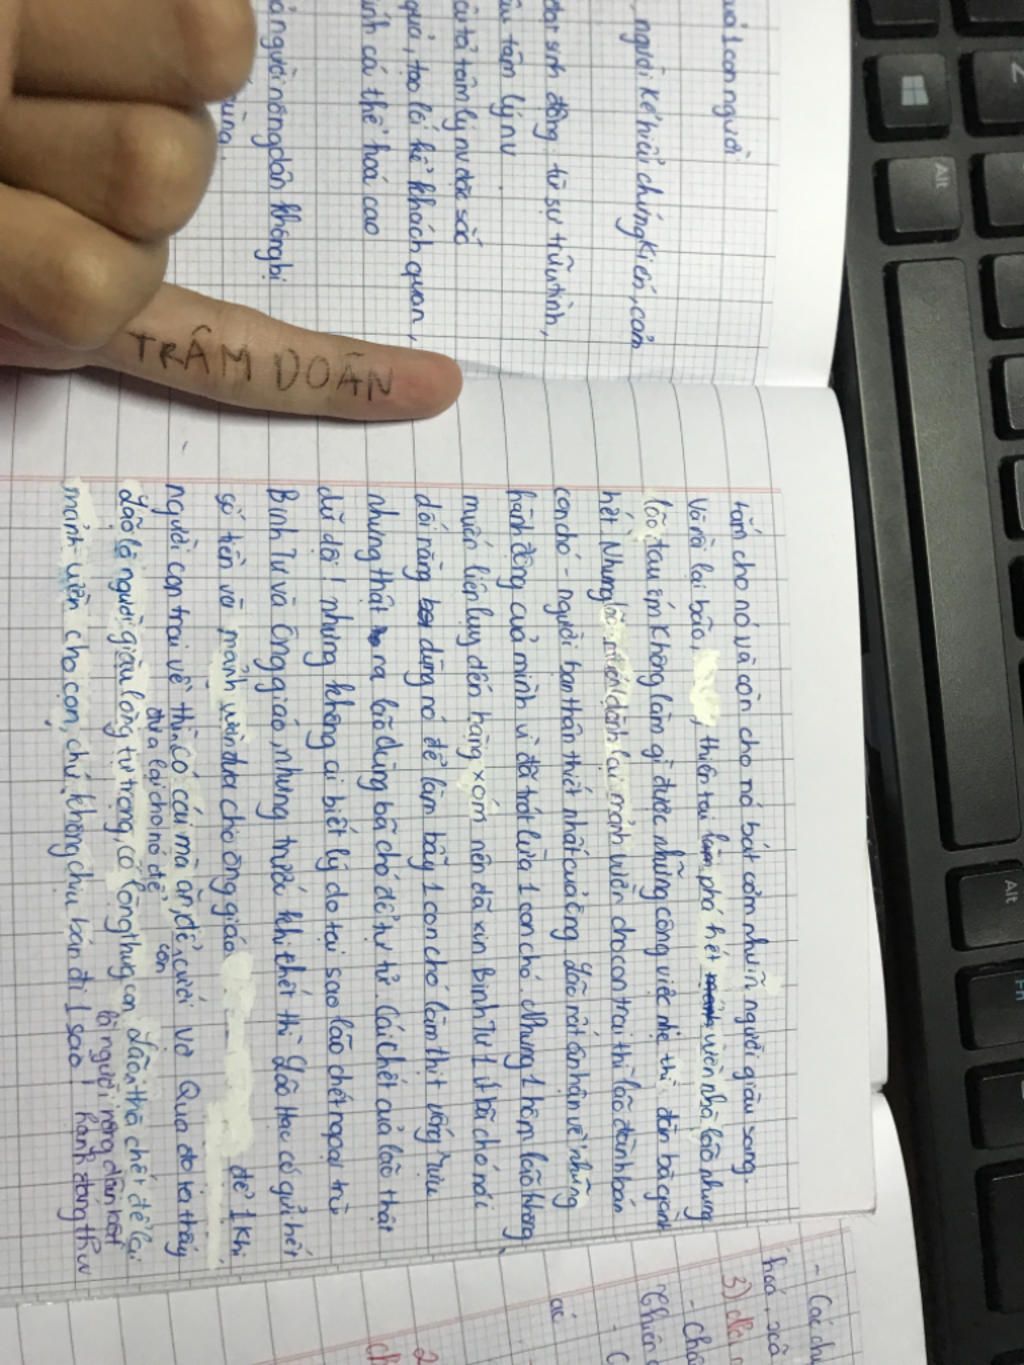 uả 1 con người
người kể hiểu chứng kiến, cảm
đạt sinh động, tự sự trữ tình,
tâm lý nv.
tả tâm lý nv đặc sắc
quả, tạo lối kể khách quan,
tính cá thể hoá cao
người nông dân không bị
cùng.
TRÂM DOÃN
tắm cho nó và còn cho nó bát cơm như n~ người giàu sang.
Và rồi lại bão, thiên tai phá hết vườn nhà lão nhưng
lão đau ốm không làm gì được những công việc nhẹ thì đàn bà giành
hết. Nhưng dành lại mảnh vườn cho con trai thì lão đành bán
con chó - người bạn thân thiết nhất của ông. Lão rất ân hận về những
hành động của mình vì đã trót lừa 1 con chó. Nhưng 1 hôm lão không
muốn liên lụy đến hàng xóm nên đã xin Binh Tư 1 ít bã chó nói
dối rằng dùng nó để làm bẫy 1 con chó làm thịt uống rượu
nhưng thật ra lão dùng bã chó để tự tử. Cái chết của lão thật
dữ dội! nhưng không ai biết lý do tại sao lão chết ngoại trừ
Binh Tư và Ông giáo, nhưng trước khi chết thì Lão Hạc có gửi hết
số tiền và mảnh vườn đưa cho ông giáo để 1 khi
người con trai về thì đưa lại cho nó để có cái mà ăn, để còn cưới vợ. Qua đó ta thấy
Lão là người giàu lòng tự trọng, có lòng thương con. Lão thà chết để lại
mảnh vườn cho con, chứ không chịu bán đi 1 sào,
là người nông dân
hành động
- Các
hoá, xã
3)
- Chấ
Chiến
ác
2